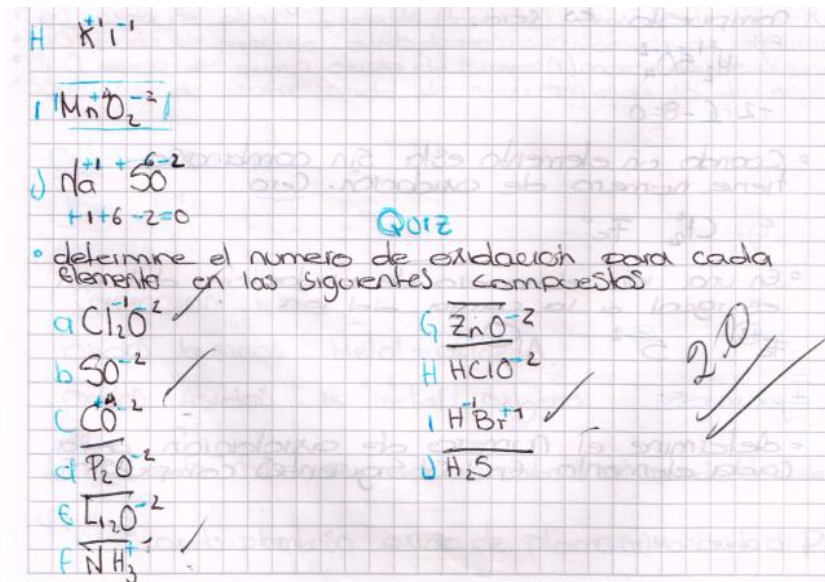 H K⁺¹I⁻¹
I Mn⁺⁴O₂⁻²
J Na⁺¹ + SO⁶⁻²
+1+6-2=0
Quiz
• determine el numero de oxidación para cada
elemento en las siguientes compuestos
a Cl₂⁻¹O⁻²
b SO⁻²
C CO⁺⁴⁻²
d P₂O⁻²
E Li₂O⁻²
F NH₃⁺¹
G ZnO⁻²
H HClO⁻²
I H⁻¹Br⁺¹
J H₂S
2.0